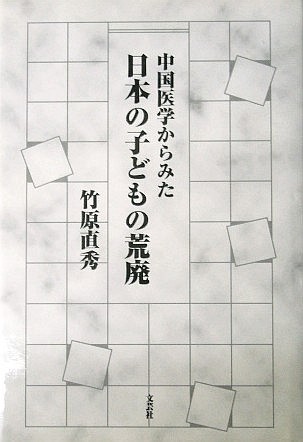 中国医学からみた
日本の子どもの荒廃
竹原直秀
文芸社